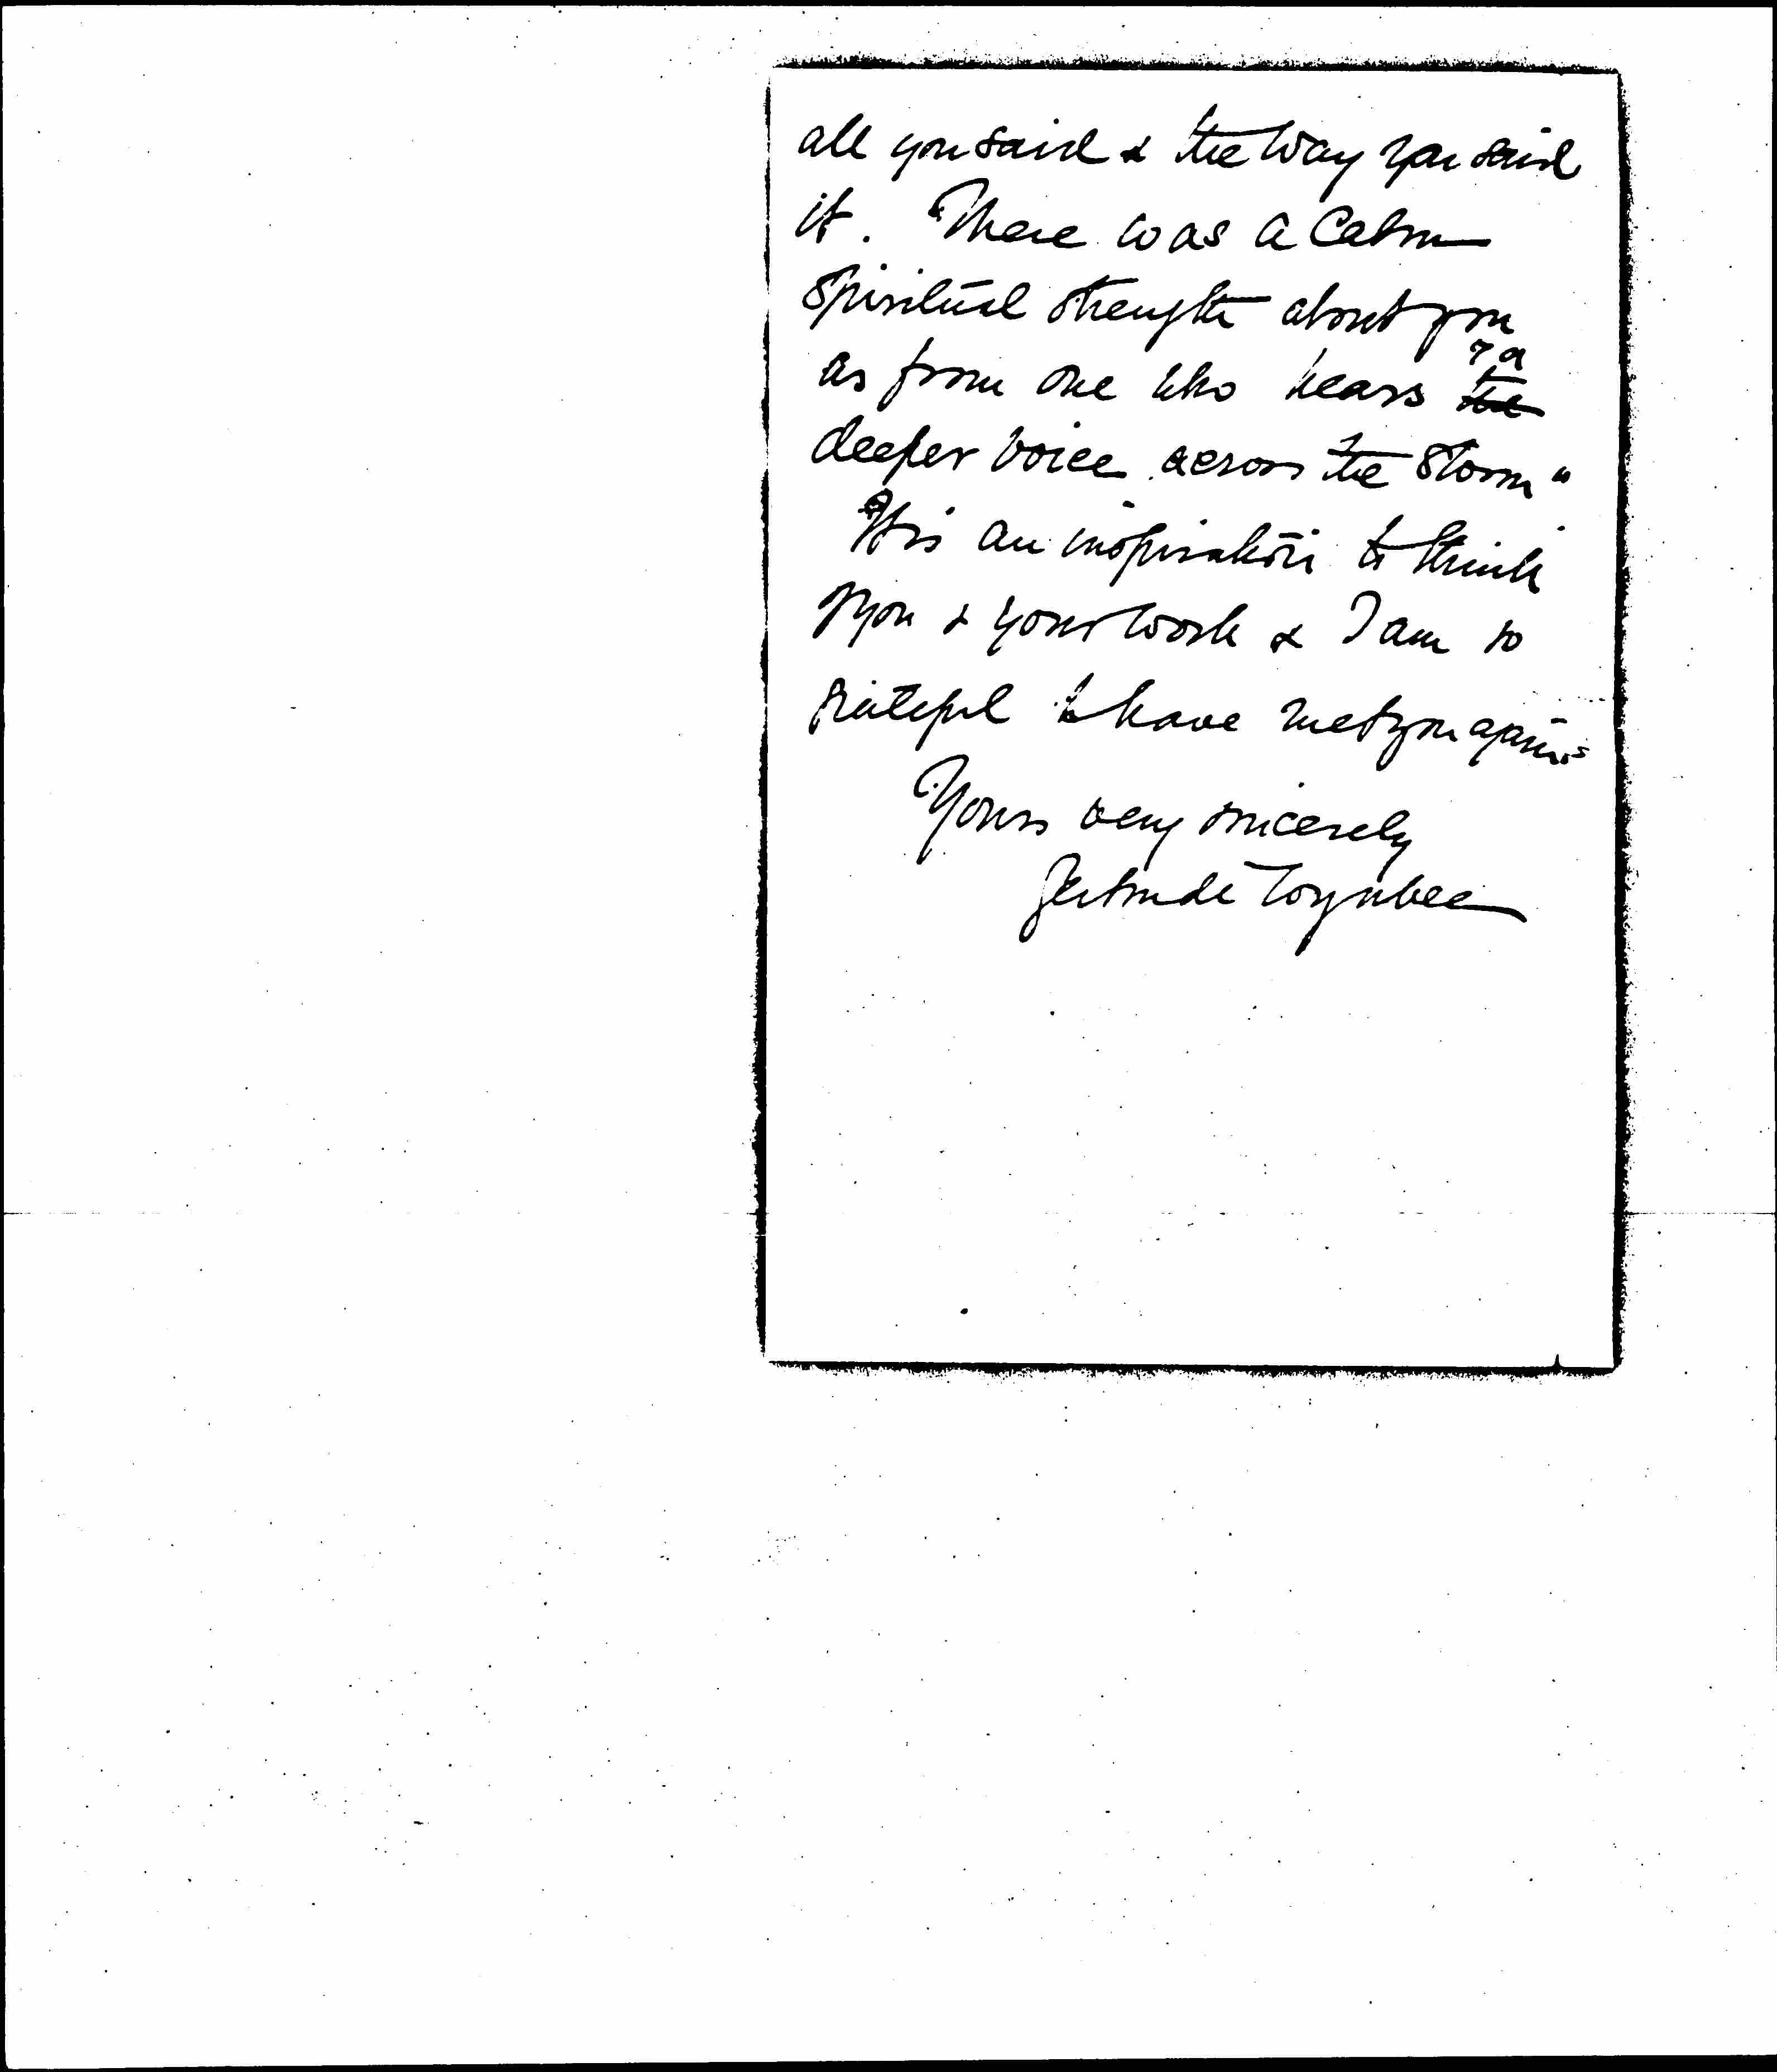 all you said & the way you said
it. There was a Calm
spiritual strength about you
as from one who hears a
the
deeper voice across the storm"
It is an inspiration to think
of you & your work & I am so
grateful to have met you again.
Yours very sincerely
Gertrude Toynbee